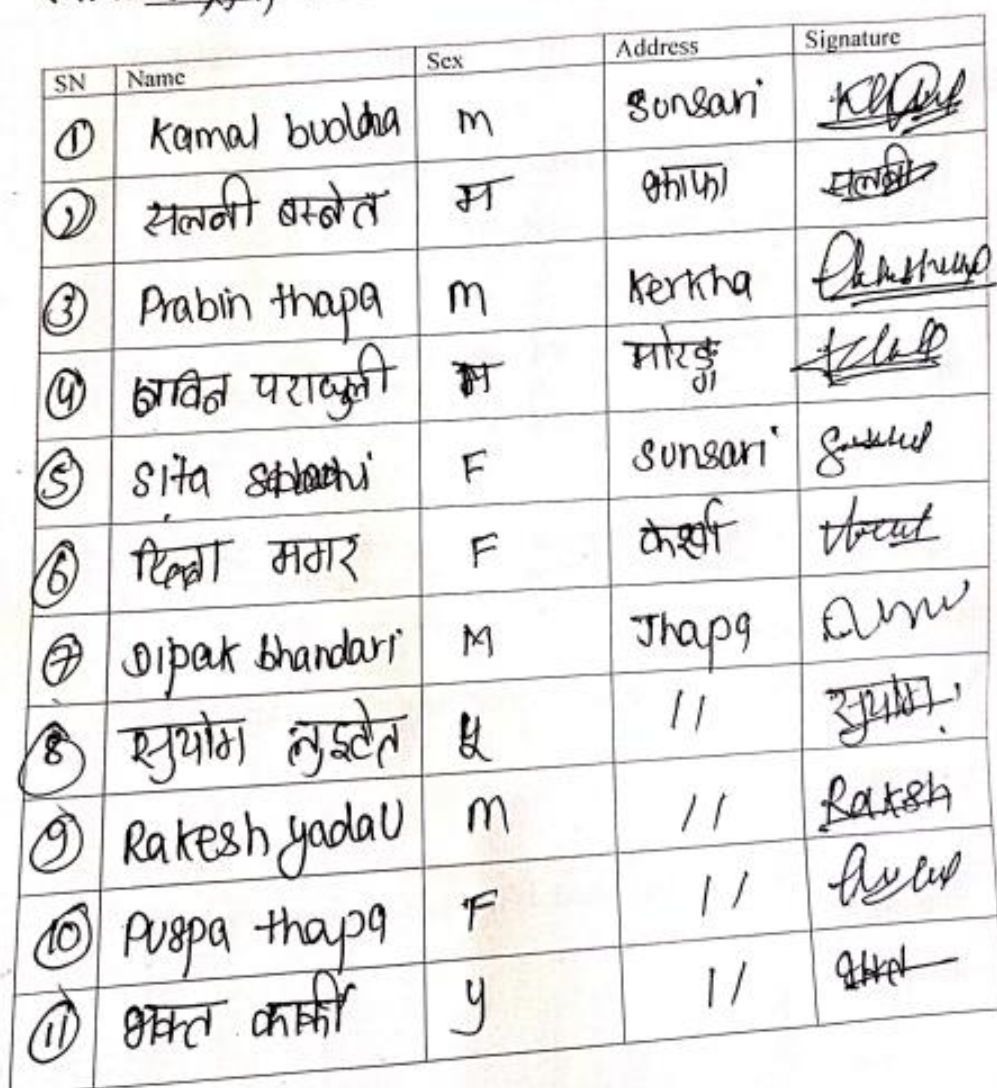 SN Name Sex Address Signature
1 Kamal buddha M Sunsari
2 सलोनी बस्नेत म झापा सलोनी
3 Prabin thapa M Kerkha
4 नविन पराजुली म मोरङ्ग
5 Sita F Sunsari
6 मगर F केर्खा
7 Dipak bhandari M Jhapa
8 सुयोग लुइटेल पु // सुयोग
9 Rakesh yadav M // Raksh
10 Puspa thapa F //
11 भक्त कार्की पु // भक्त